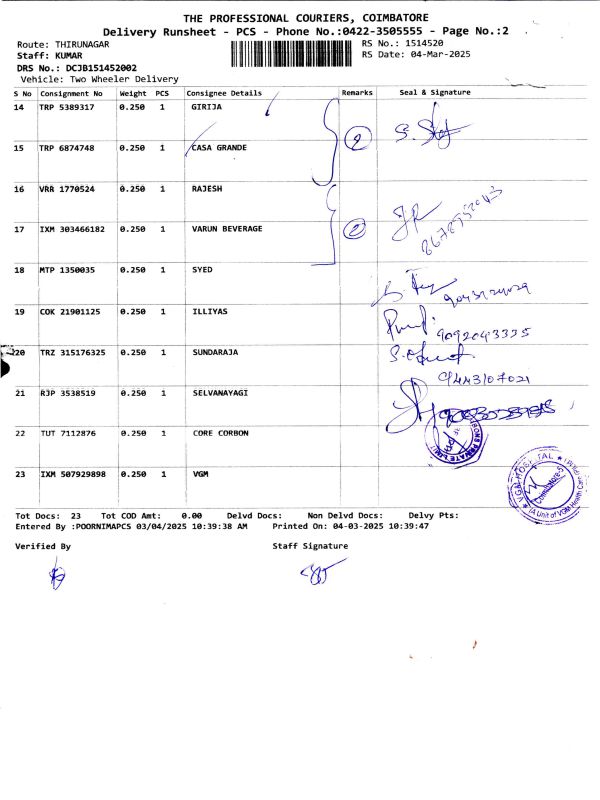 THE PROFESSIONAL COURIERS, COIMBATORE
Delivery Runsheet - PCS - Phone No.:0422-3505555 - Page No.:2
Route: THIRUNAGAR RS No.: 1514520
Staff: KUMAR RS Date: 04-Mar-2025
DRS No.: DCJB151452002
Vehicle: Two Wheeler Delivery
S No Consignment No Weight PCS Consignee Details Remarks Seal & Signature
14 TRP 5389317 0.250 1 GIRIJA
2
15 TRP 6874748 0.250 1 CASA GRANDE
16 VRR 1770524 0.250 1 RAJESH
17 IXM 303466182 0.250 1 VARUN BEVERAGE 2
18 MTP 1350035 0.250 1 SYED
19 COK 21901125 0.250 1 ILLIYAS
9092043335
20 TRZ 315176325 0.250 1 SUNDARAJA
9443107021
21 RJP 3538519 0.250 1 SELVANAYAGI
22 TUT 7112876 0.250 1 CORE CORBON
23 IXM 507929898 0.250 1 VGM
VGM HOSPITAL
Coimbatore-5
(A Unit of VGM Health Care
Tot Docs: 23 Tot COD Amt: 0.00 Delvd Docs: Non Delvd Docs: Delvy Pts:
Entered By :POORNIMAPCS 03/04/2025 10:39:38 AM Printed On: 04-03-2025 10:39:47
Verified By Staff Signature